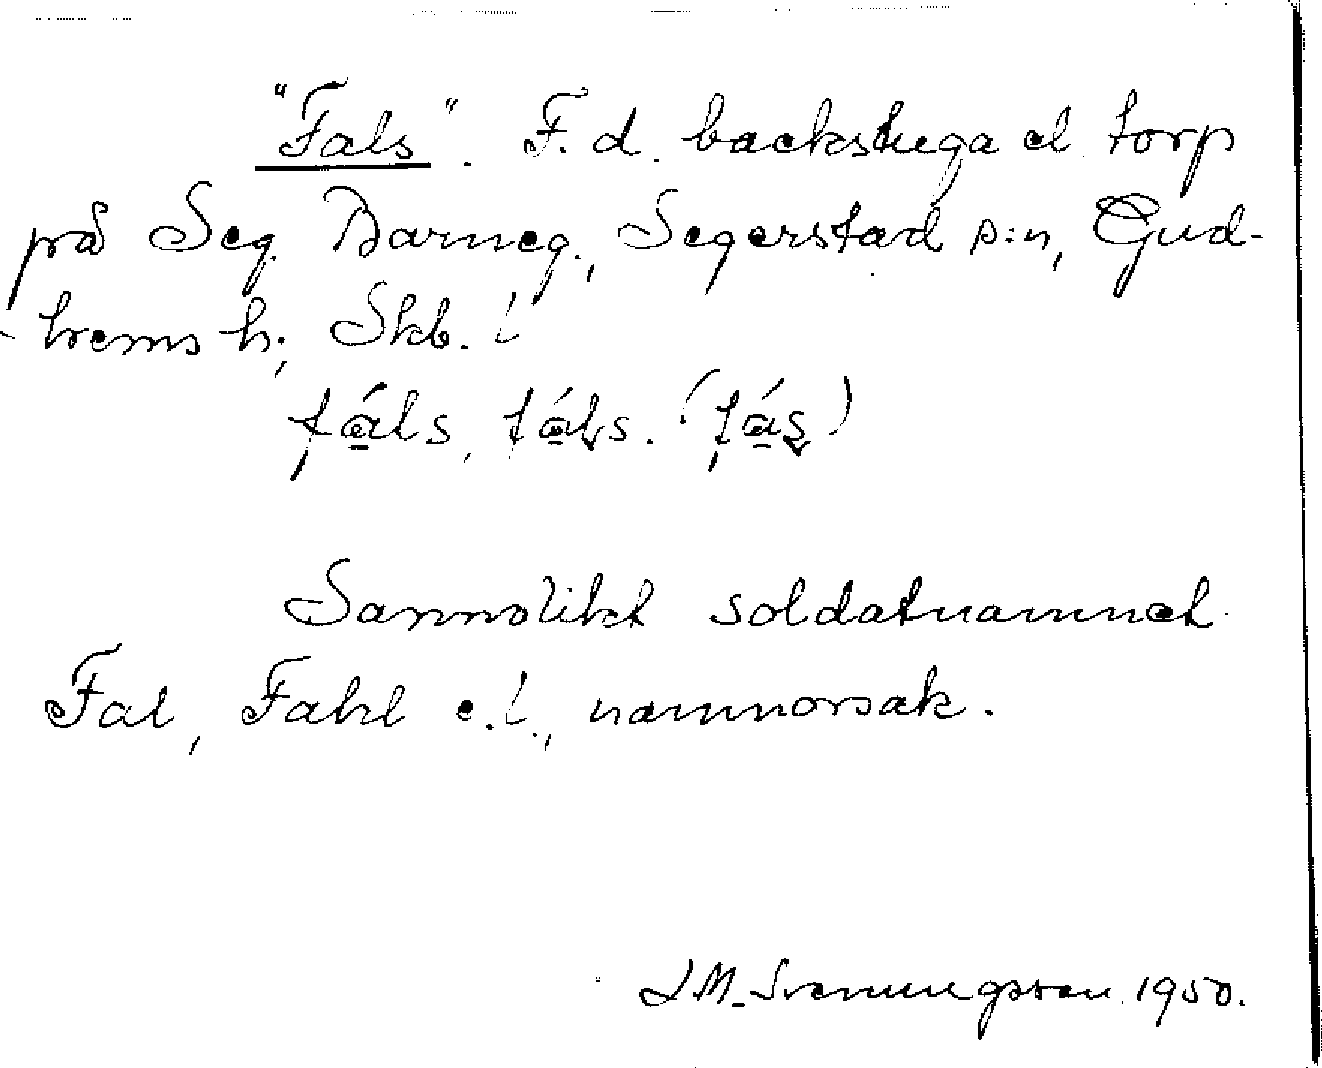 "Fals". F.d. backstuga el torp
på Seg. Barneg., Segerstad s:n, Gud-
-hems h:, Skb. l
fá̲ls, fá̲ls. (fá̲s)
Sannolikt soldatnamnet
Fal, Fahl e.l., namnorsak.
J M. Svenningsson 1950.